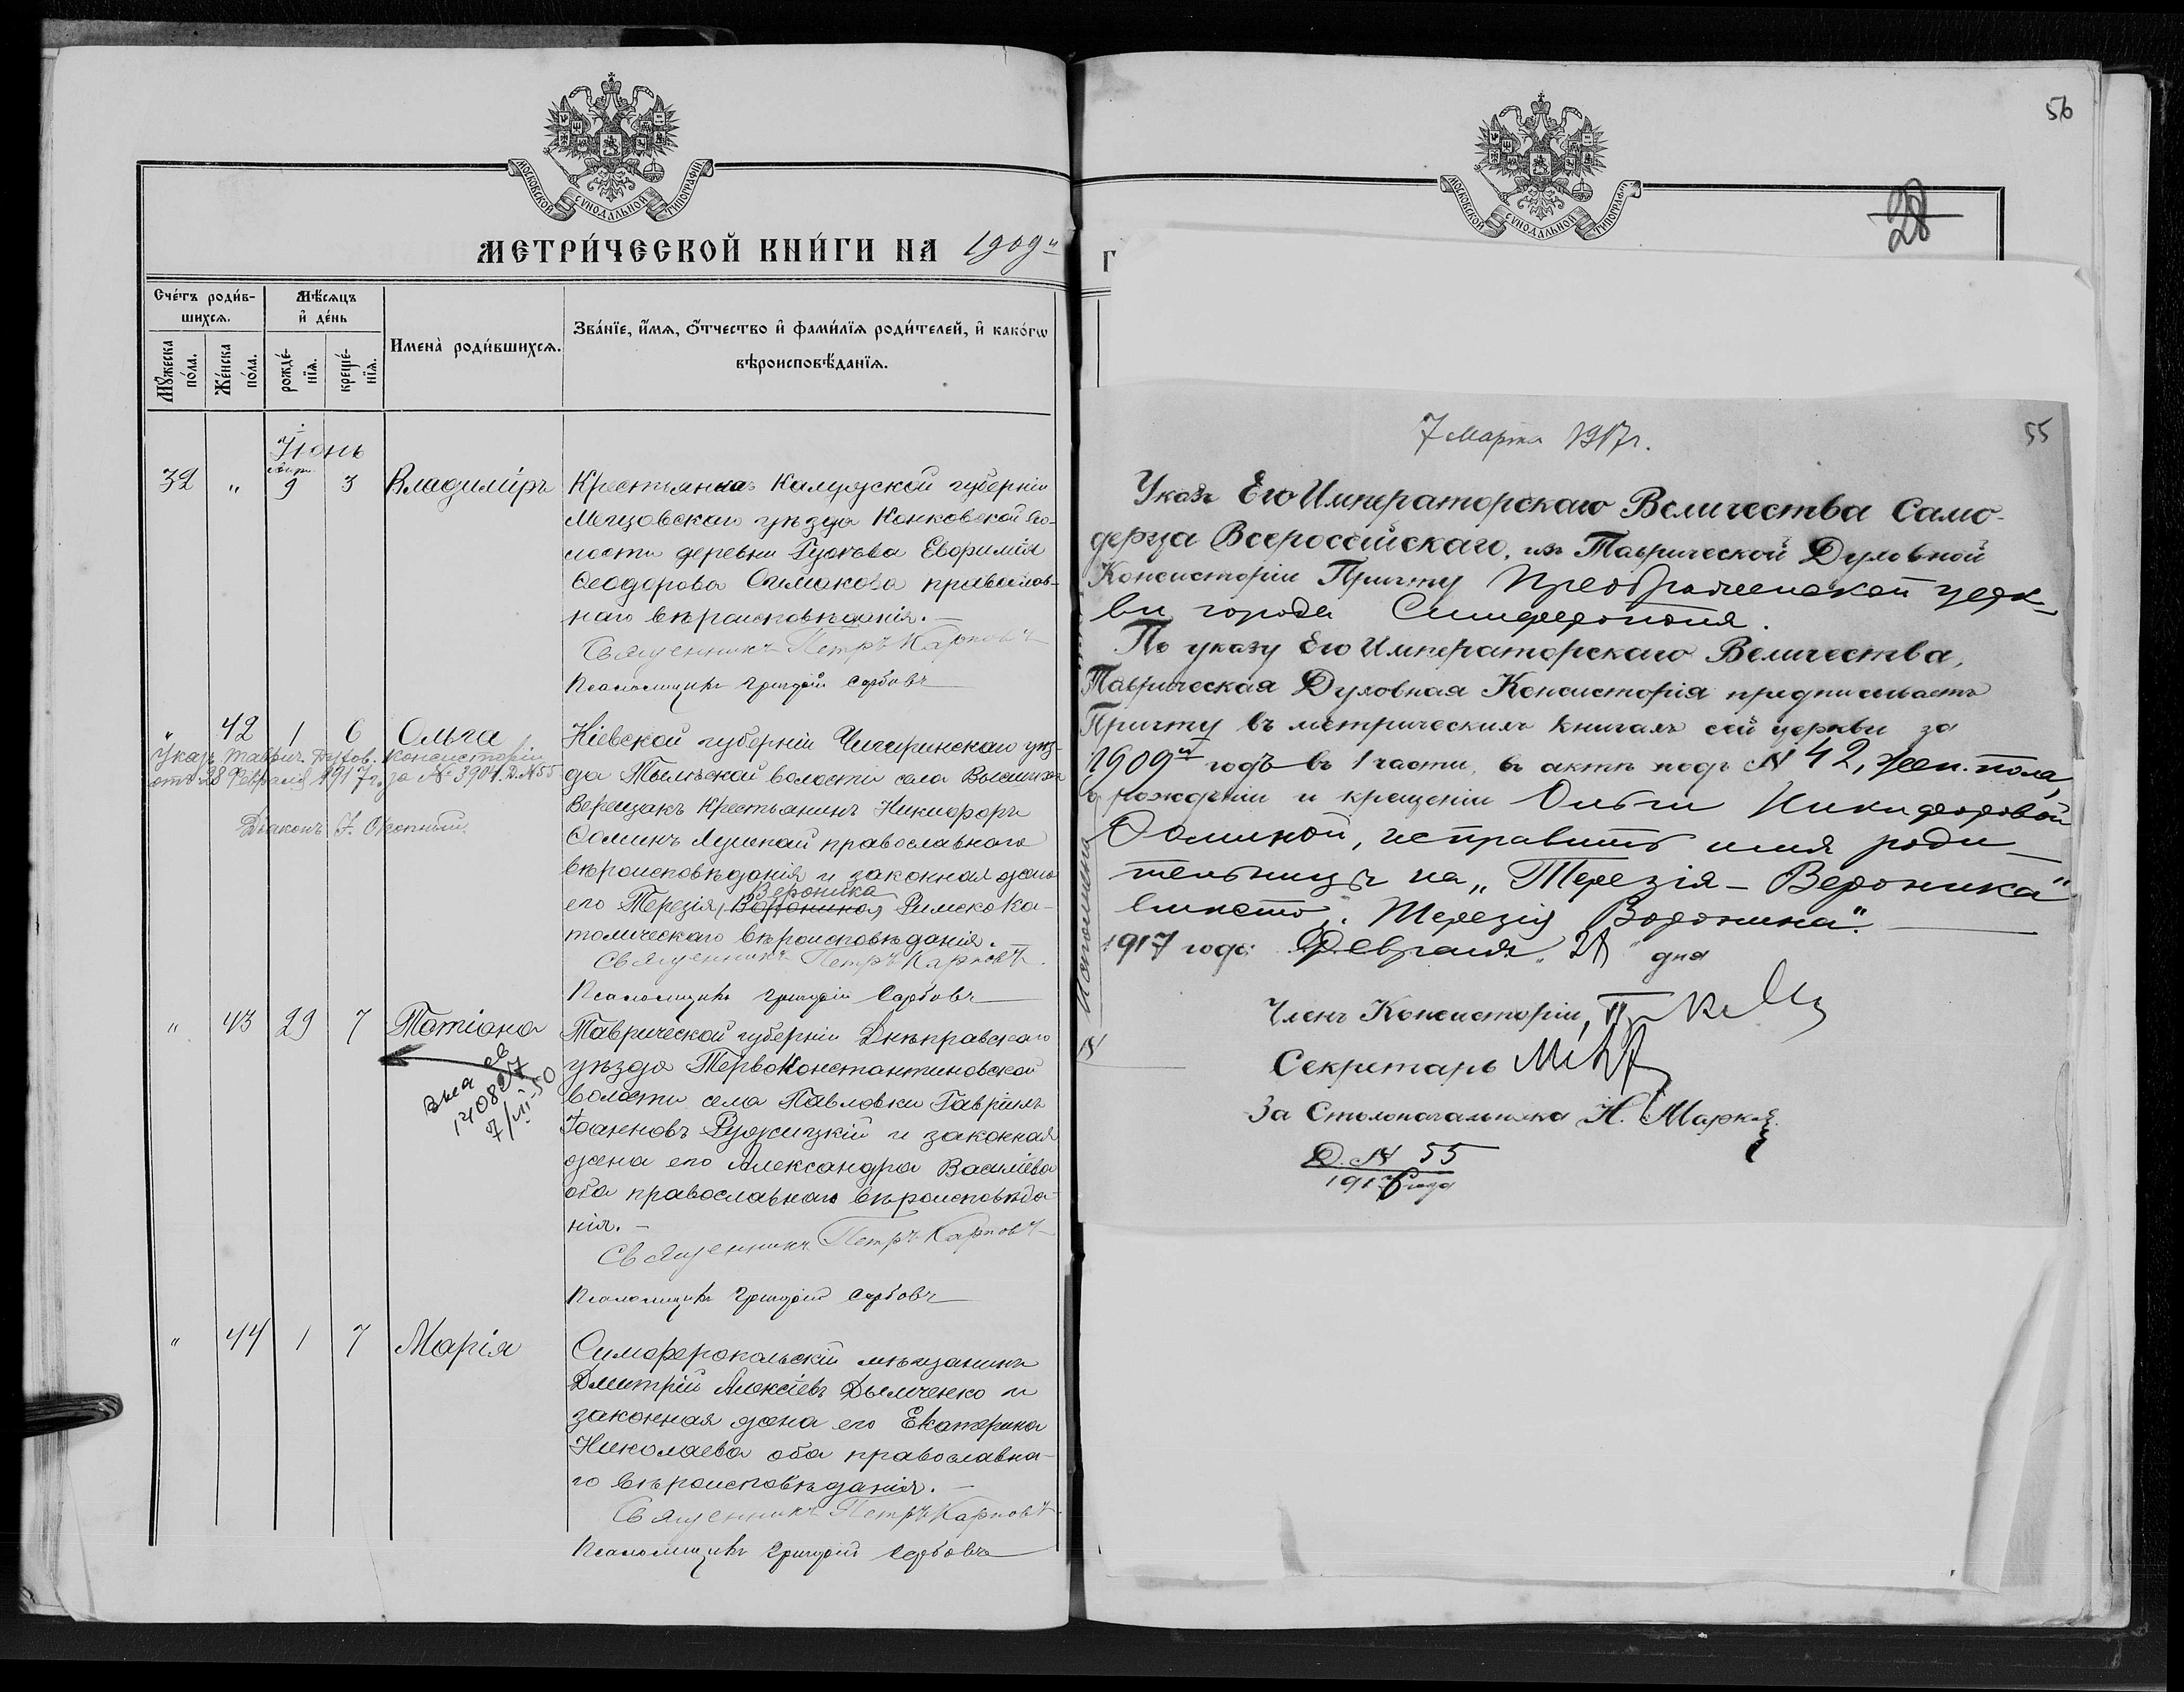 МОСКОВСКОЙ СУНОДАЛЬНОЙ ТИПОГРАФІИ
МЕТРИ́ЧЕСКОЙ КНИ́ГИ НА 1909й
Сче́тъ роди́в-
шихсѧ.
Мѣ́сѧцъ
и҆ де́нь
Мꙋ́жеска
по́ла.
Же́нска
по́ла.
рожде́-
нїѧ.
креще́-
нїѧ.
Имена̀ роди́вшихсѧ.
Зва́нїе, и҆́мѧ, ѻ҆́тчество и҆ фами́лїѧ роди́телей, и҆ како́гѡ
вѣроисповѣ́данїѧ.
Іюнь
32 " 9 3 Владиміръ
Крестьянка Калужской губерніи
Мещовскаго уѣзда Конковской во-
лости деревни Евфимія
Ѳеодорова Симакова православ-
наго вѣроисповѣданія.—
Священникъ Петръ Карповъ
Псаломщикъ Григорій Сербовъ
" 42 1 6 Ольга
Указъ Таврич. Духов. Консисторіи
отъ 28 Февраля 1917 г. за № 3901. Д. №55
Діаконъ І. Окопный.
Кіевской губерніи Чигиринскаго уѣз-
да Тимской волости села Высших
Верещакъ крестьянинъ Никифоръ
Ѳоминъ православнаго
вѣроисповѣданія и законная жена
Вероника
его Терезія Воронина Римско ка-
толическаго вѣроисповѣданія.
Священникъ Петръ Карповъ.
Псаломщикъ Григорій Сербовъ
" 43 29 7 Татіана
140827
7/VII-50
Таврической губерніи Днѣпровскаго
уѣзда Первоконстантиновской
волости села Павловки Гавріилъ
Іоанновъ Ружицкій и законная
жена его Александра Василіева
оба православнаго вѣроисповѣда-
нія.—
Священникъ Петръ Карповъ
Псаломщикъ Григорій Сербовъ
" 44 1 7 Марія
Симферопольскій мѣщанинъ
Дмитрій Алексіевъ Дымченко и
законная жена его Екатерина
Николаева оба православна-
го вѣроисповѣданія.—
Священникъ Петръ Карповъ
Псаломщикъ Григорій Сербовъ
56
МОСКОВСКОЙ СУНОДАЛЬНОЙ ТИПОГРАФІИ
28
Г
55
7 Марта 1917 г.
Указъ Его Императорскаго Величества Само-
держца Всероссійскаго, изъ Таврической Духовной
Консисторіи Причту Преображенской церк-
ви города Симферополя.
По указу Его Императорскаго Величества,
Таврическая Духовная Консисторія предписываетъ
Причту въ метрическихъ книгахъ сей церкви за
1909й годъ въ 1 части, въ актѣ подъ № 42, жен. пола,
о рожденіи и крещеніи Ольги Никифоровой
Ѳоминой, исправить имя роди-
тельницы на „Терезія-Вероника"
вмѣсто: „Терезія Воронина".
1917 года Февраля „28" дня
Исполнено
Членъ Консисторіи,
Секретарь
За Столоначальника Н.
Д. № 55
1916 года